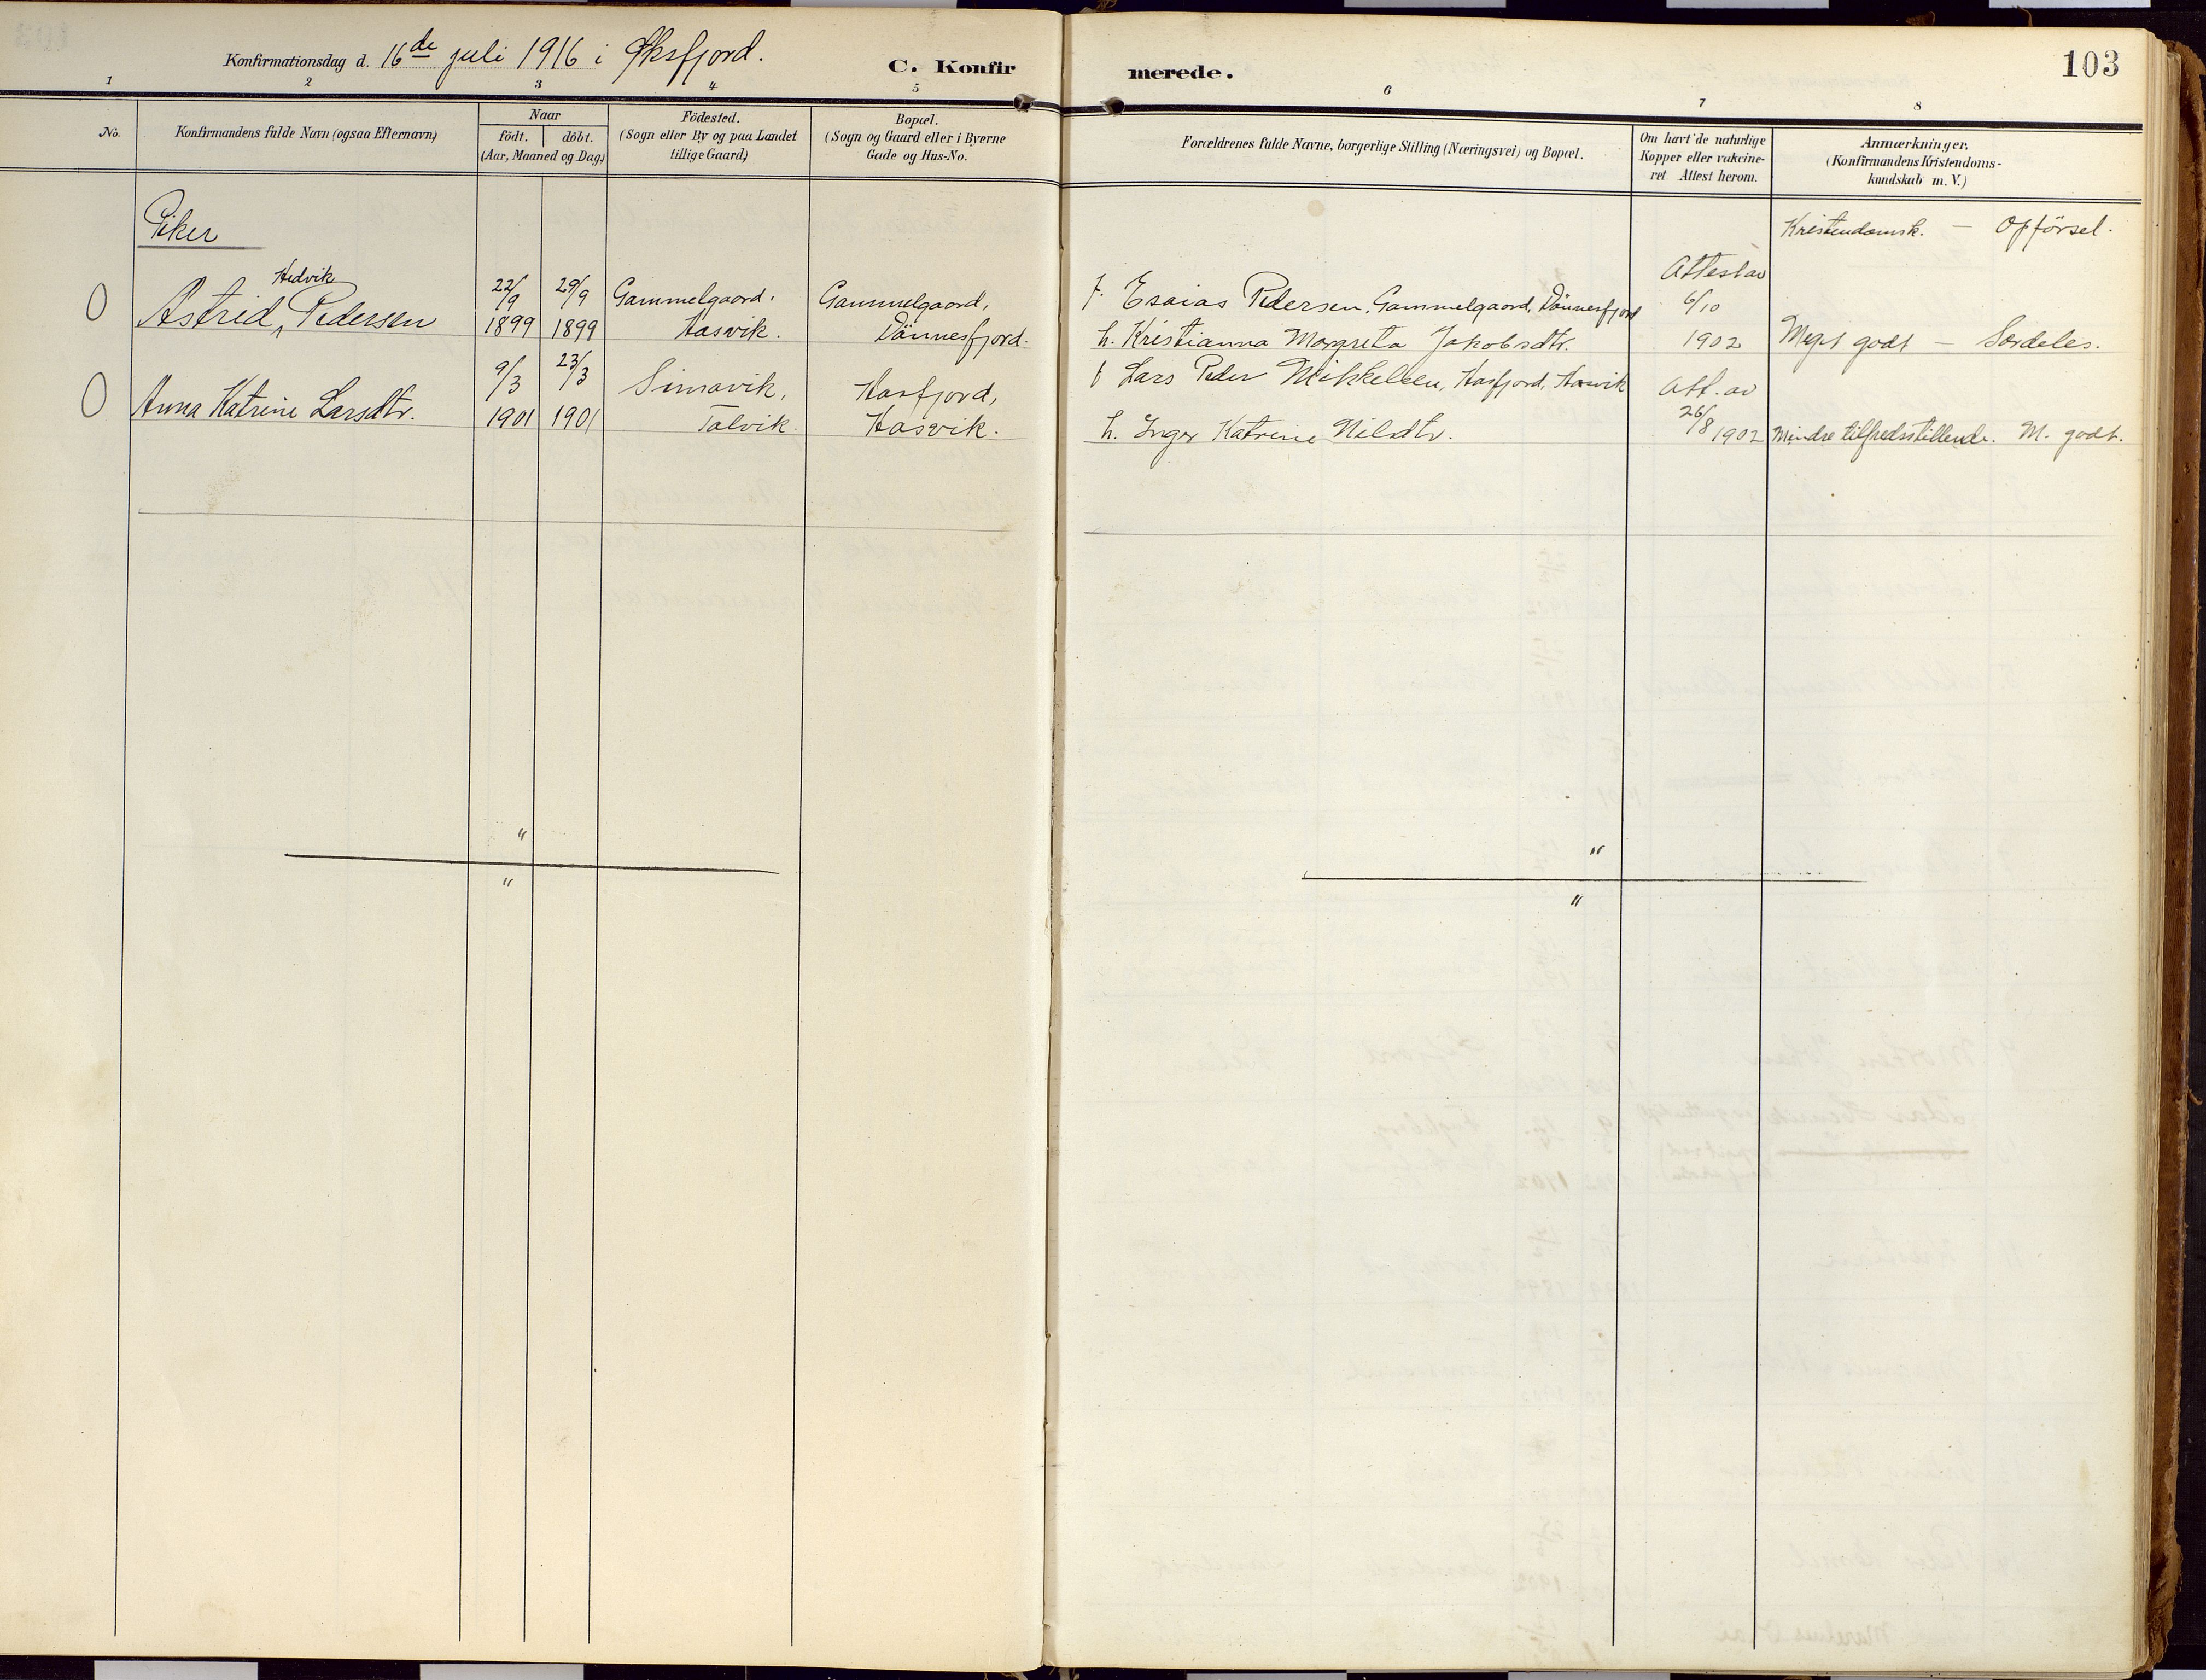 Konfirmationsdag d. 16de juli 1916 i Øksfjord.
C. Konfirmerede.
103
1 2 3 4 5 6 7 8
No.
Konfirmandens fulde Navn (ogsaa Efternavn)
Naar
födt. döbt.
(Aar, Maaned og Dag)
Födested.
(Sogn eller By og paa Landet
tillige Gaard)
Bopæl.
(Sogn og Gaard eller i Byerne
Gade og Hus-No.
Forældrenes fulde Navne, borgerlige Stilling (Næringsvei) og Bopæl.
Om havt de naturlige
Kopper eller vakcine-
ret Attest herom.
Anmærkninger.
(Konfirmandens Kristendoms-
kundskab m. V.)
Piker
Kristendomsk. — Opförsel.
Hedvik
Astrid, Pedersen
22/9 29/9
1899 1899
Gammelgaard,
Hasvik.
Gammelgaard,
Dönnesfjord.
f. Esaias Pedersen, Gammelgaard, Dönnesfjord
h. Kristianna Margreta Jakobsdtr.
Attest av
6/10
1902
Meget godt — Særdeles.
Anna Katrine Larsdtr.
9/3 23/3
1901 1901
Simavik,
Talvik.
Hasfjord,
Hasvik.
f Lars Peder Mikkelsen, Hasfjord, Hasvik
h. Inger Katrine Nilsdtr.
Att. av
26/8 1902
Mindre tilfredsstillende. M. godt.